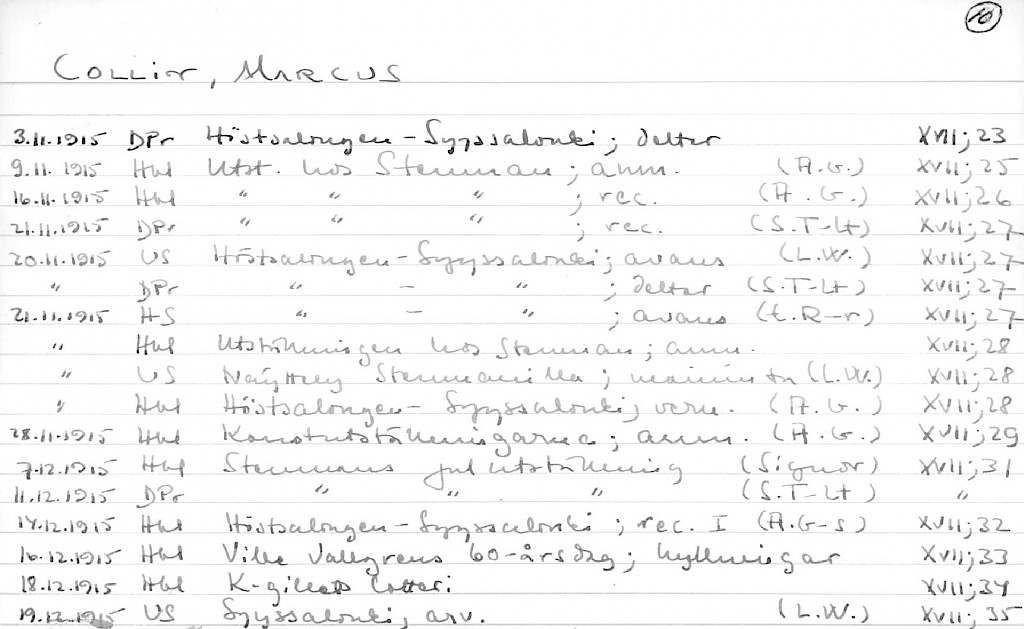 10
COLLIN, MARCUS
3.11.1915 DPr Höstsalongen - Syyssalonki; deltar XVII;23
9.11.1915 Hbl Utst. hos Stenman; anm. (A.G.) XVII;25
16.11.1915 Hbl " " " ; rec. (A.G.) XVII;26
21.11.1915 DPr " " " ; rec. (S.T-lt) XVII;27
20.11.1915 US Höstsalongen - Syyssalonki; avaus (L.W.) XVII;27
" DPr " - " ; deltar (S.T-lt) XVII;27
21.11.1915 HS " - " ; avaus (E.R-r) XVII;27
" Hbl Utställningen hos Stenman; anm. XVII;28
" US Näyttely Stenmanilla; maininta (L.W.) XVII;28
" Hbl Höstsalongen - Syyssalonki; vern. (A.G.) XVII;28
28.11.1915 Hbl Konstutställningarna; anm. (A.G.) XVII;29
7.12.1915 Hbl Stenmans julutställning (Signor) XVII;31
11.12.1915 DPr " " " (S.T-lt) "
14.12.1915 Hbl Höstsalongen - Syyssalonki; rec. I (A.G-s) XVII;32
16.12.1915 Hbl Ville Vallgrens 60-årsdag; hyllningar XVII;33
18.12.1915 Hbl K-gillets lotteri XVII;34
19.12.1915 US Syyssalonki; arv. (L.W.) XVII;35